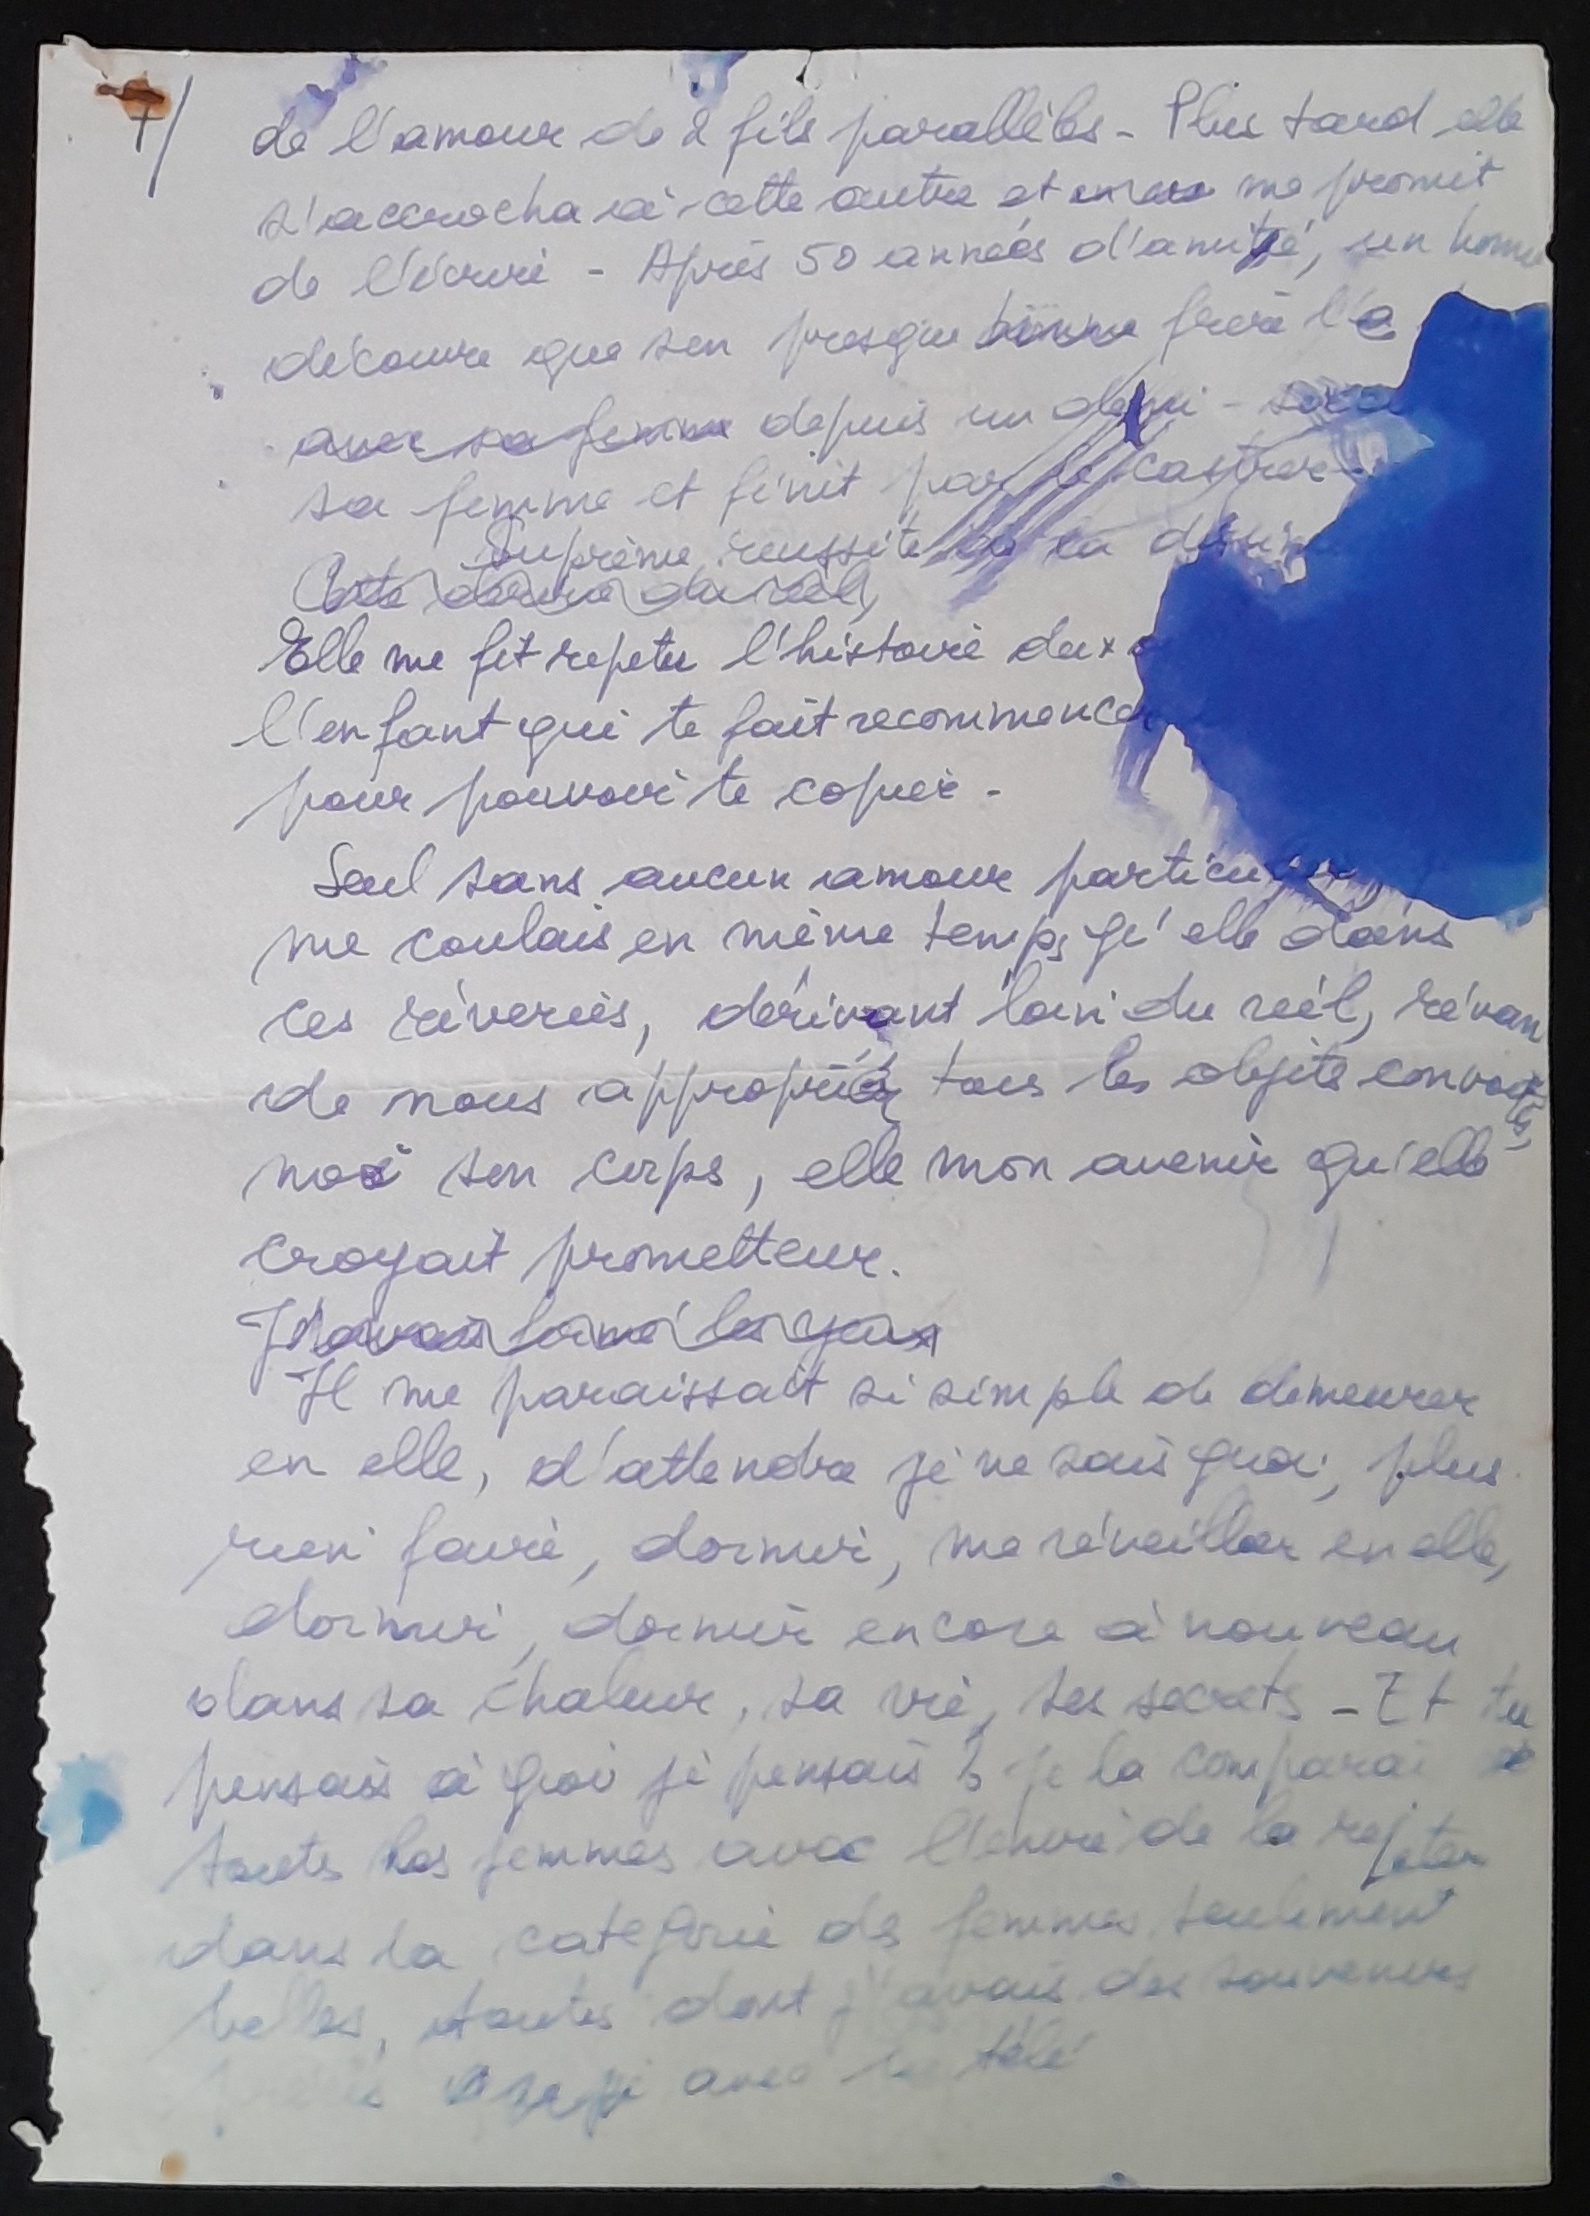 7/
de l'amour de 2 fils parallèles - Plus tard elle
s'accrocha à cette autre et me promit
de l'écrire - Après 50 années d'amitié, un homme
découvre que son presque frère l'a
avec sa femme depuis un demi-
sa femme et finit par le castrer
Suprême réussite de la
Cette
Elle me fit repeter l'histoire deux
l'enfant qui te fait recommencer
pour pouvoir te copier -
Seul sans aucun amour particulier
me coulais en même temps qu'elle dans
ces rêveries, dérivant loin du réel, rêvan
de nous approprier tous les objets convoités,
moi son corps, elle mon avenir qu'elle
croyait prometteur.
J'avais fermé les yeux
Il me paraissait si simple de demeurer
en elle, d'attendre je ne sais quoi, plus
rien faire, dormir, me réveiller en elle,
dormir, dormir encore à nouveau
dans sa chaleur, sa vie, ses secrets - Et tu
pensais à quoi je pensais ? je la comparai
toutes les femmes avec l'envie de la rejeter
dans la categorie des femmes seulement
belles, toutes dont j'avais des souvenirs
avec la télé